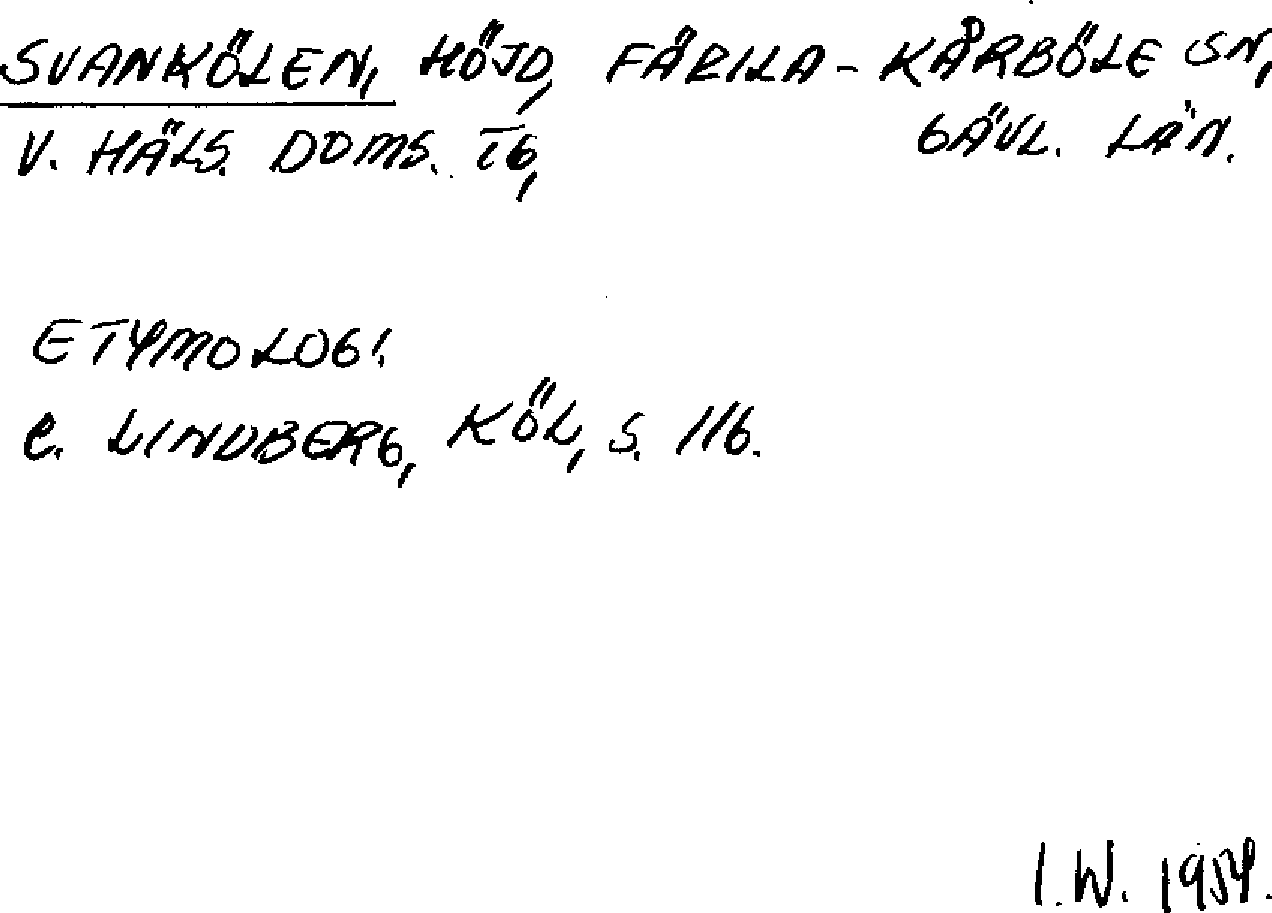 SVANKÖLEN, HÖJD, FÄRILA - KÅRBÖLE SN,
V. HÄLS. DOMS. TG, GÄVL. LÄN.
ETYMOLOGI.
C. LINDBERG, KÖL, S. 116.
I.W. 1954.